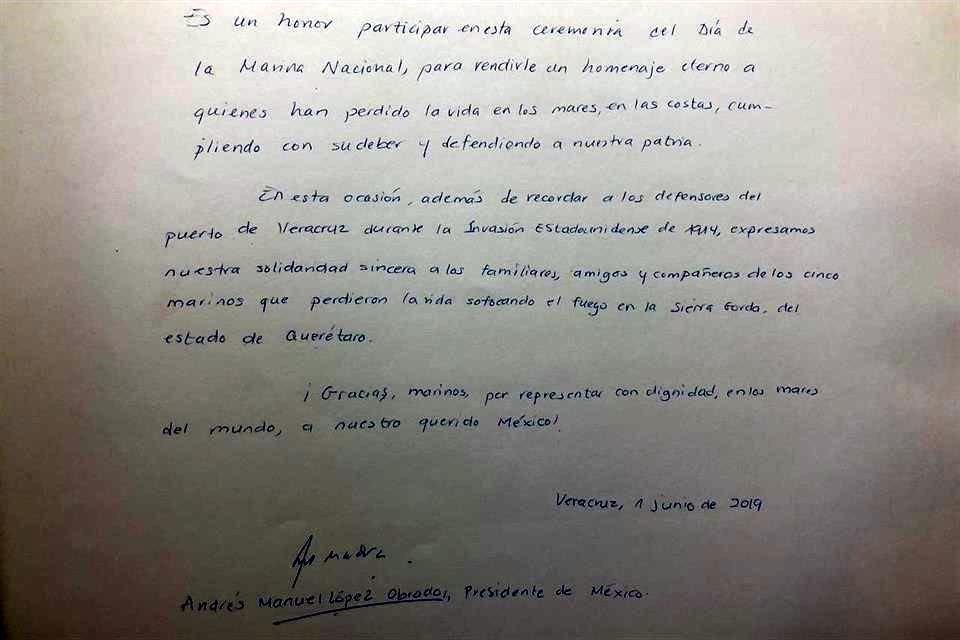 Es un honor participar en esta ceremonia del Día de
la Marina Nacional, para rendirle un homenaje eterno a
quienes han perdido la vida en los mares, en las costas, cum-
pliendo con su deber y defendiendo a nuestra patria.
En esta ocasión, además de recordar a los defensores del
puerto de Veracruz durante la Invasión Estadounidense de 1914, expresamos
nuestra solidaridad sincera a los familiares, amigos y compañeros de los cinco
marinos que perdieron la vida sofocando el fuego en la Sierra Gorda, del
estado de Querétaro.
¡Gracias, marinos, por representar con dignidad, en los mares
del mundo, a nuestro querido México!
Veracruz, 1 junio de 2019
Andrés Manuel López Obrador, Presidente de México.